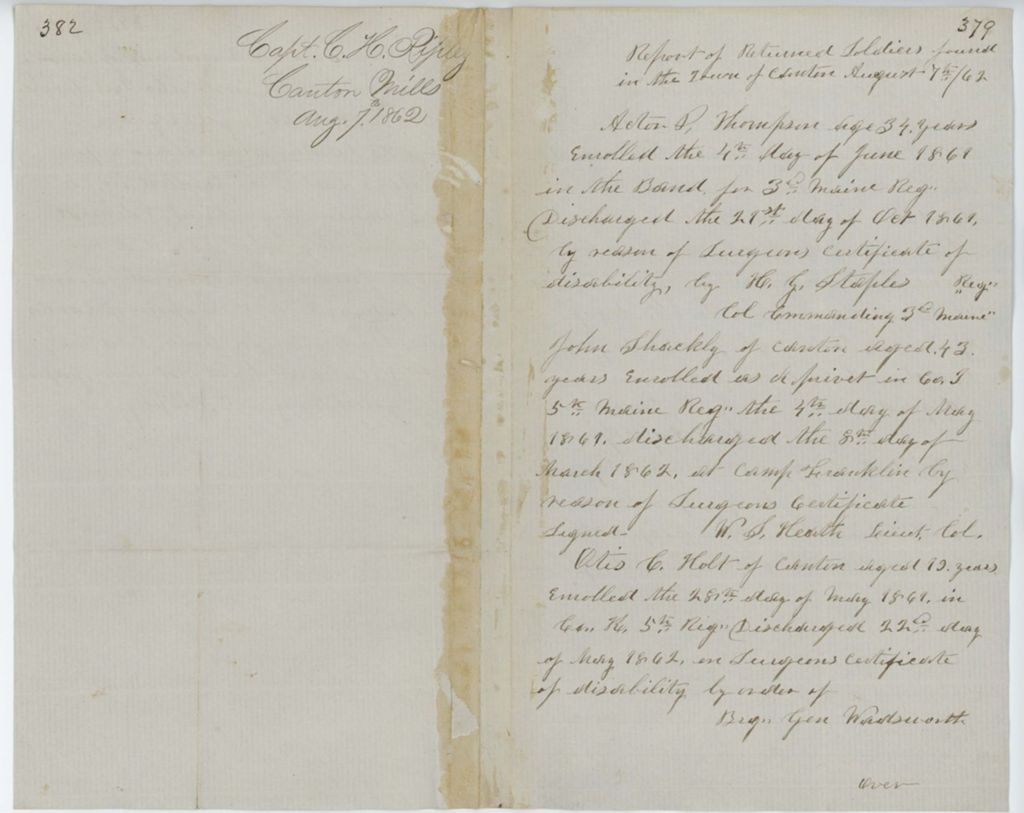 382
Capt. C. H. Ripley
Canton Mills
Aug. 7th 1862
379
Report of Returned Soldiers found
in the Town of Canton August 7th/62
Acton P. Thompson age 34 years
Enrolled the 4th day of June 1861
in the Band for 3d Maine Reg"
Discharged the 21st day of Oct 1861.
by reason of Surgeons Certificate of
disability, by H. G. Staples Reg"
Col Commanding 3d Maine"
John Shackly of Canton aged 43.
years Enrolled as a privet in Co. I
5th Maine Reg" the 4th day of May
1861. discharged the 8th day of
March 1862. at Camp Franklin by
reason of Surgeons Certificate
Signed- W. S. Heath Lieut. Col.
Otis C. Holt of Canton aged 19. years
Enrolled the 28th day of May 1861. in
Co. K. 5th Reg" Discharged 22d day
of May 1862. on Surgeons Certificate
of disability by order of
Brg" Gen Wadsworth
over